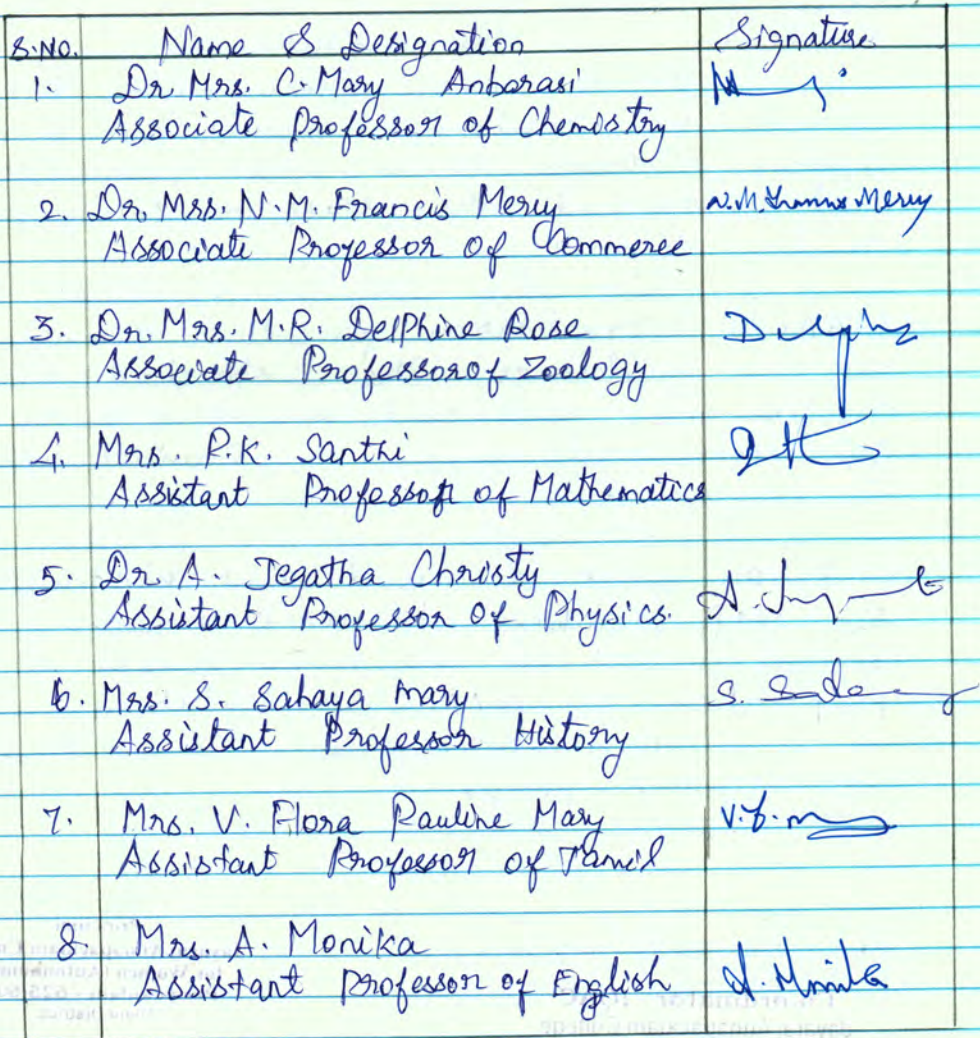 S.NO. Name & Designation Signature
1. Dr Mrs. C. Mary Anbarasi
Associate Professor of Chemistry
2. Dr. Mrs. N.M. Francis Mercy N.M. Francis Mercy
Associate Professor of Commerce
3. Dr. Mrs. M.R. Delphine Rose
Associate Professor of Zoology
4. Mrs. P.K. Santhi
Assistant Professor of Mathematics
5. Dr. A. Jegatha Christy
Assistant Professor of Physics.
6. Mrs. S. Sahaya mary
Assistant Professor History
7. Mrs. V. Flora Pauline Mary
Assistant Professor of Tamil
8. Mrs. A. Monika
Assistant Professor of English